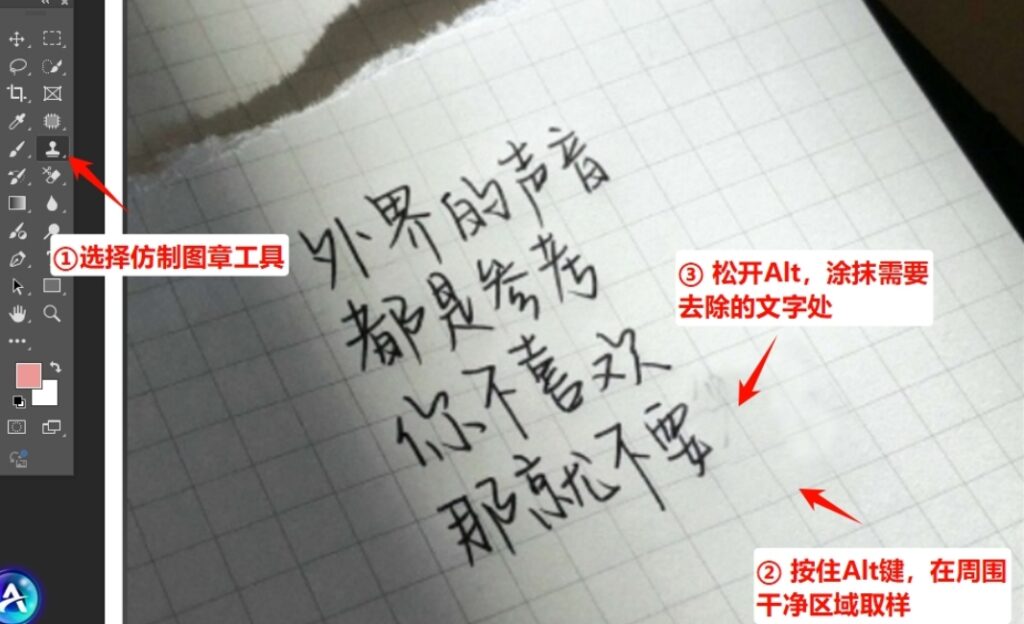 ①选择仿制图章工具
外界的声音
都是参考
你不喜欢
那就不要
③ 松开Alt，涂抹需要
去除的文字处
② 按住Alt键，在周围
干净区域取样